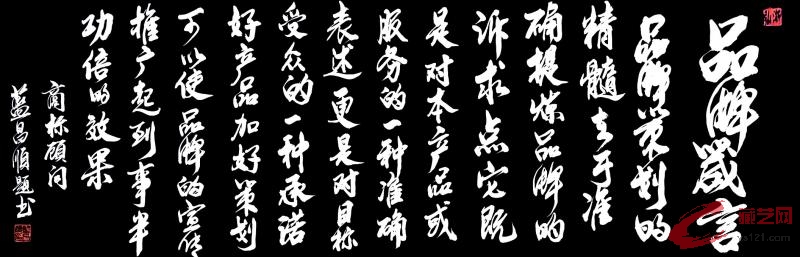 品牌箴言
品牌策划的
精髓在于准
确提炼品牌的
诉求点它既
是对本产品或
服务的一种准确
表述更是对目标
受众的一种承诺
好产品加好策划
可以使品牌的宣传
推广起到事半
功倍的效果
商标顾问
蓝昌顺题书
藏艺网